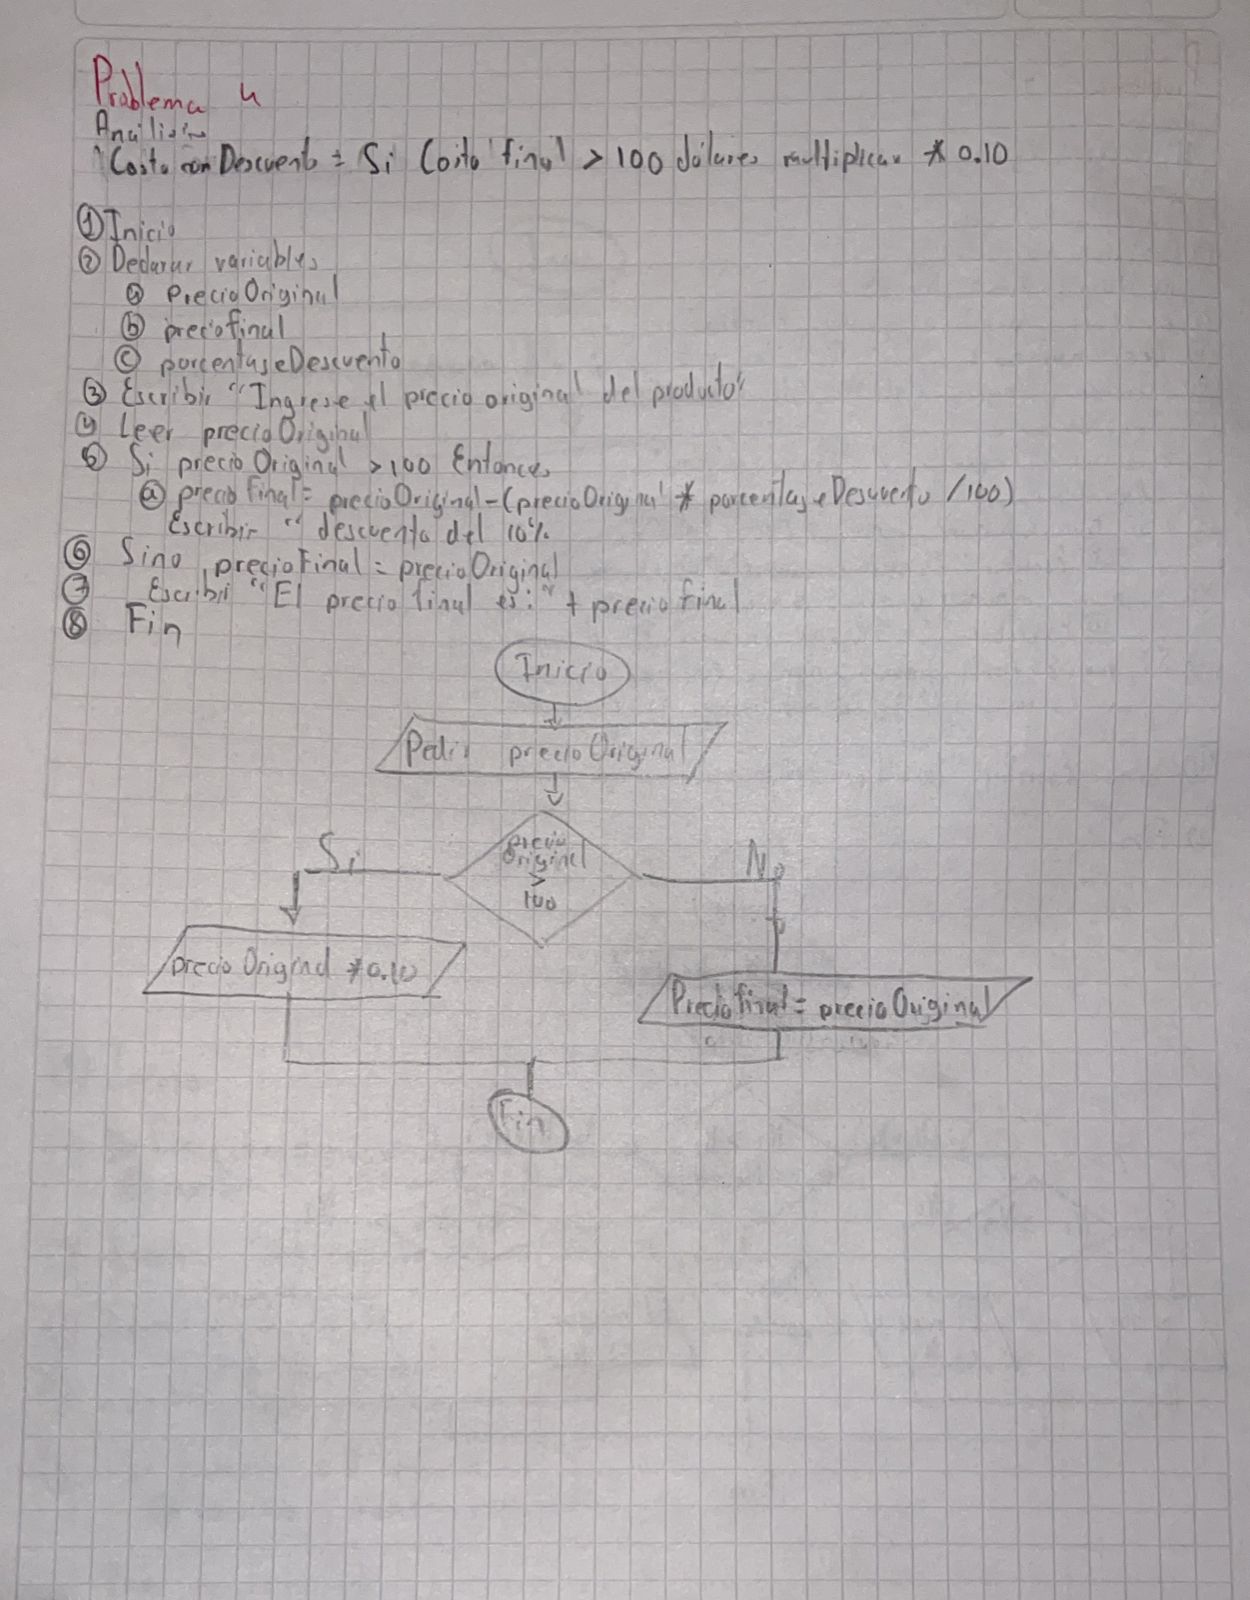 Problema 4
Análisis
Costo con Descuento = Si Costo final > 100 dólares multiplicar * 0.10
① Inicio
② Declarar variables
ⓐ PrecioOriginal
ⓑ preciofinal
ⓒ porcentajeDescuento
③ Escribir "Ingrese el precio original del producto"
④ Leer precioOriginal
⑤ Si precioOriginal > 100 Entonces
ⓐ precioFinal = precioOriginal - (precioOriginal * porcentajeDescuento / 100)
Escribir " descuento del 10%
⑥ Sino precioFinal = precioOriginal
⑦ Escribir "El precio final es:" + precioFinal
⑧ Fin
Inicio
Pedir precioOriginal
precio
Original
>
100
Si
No
precioOriginal * 0.10
Preciofinal = precioOriginal
Fin